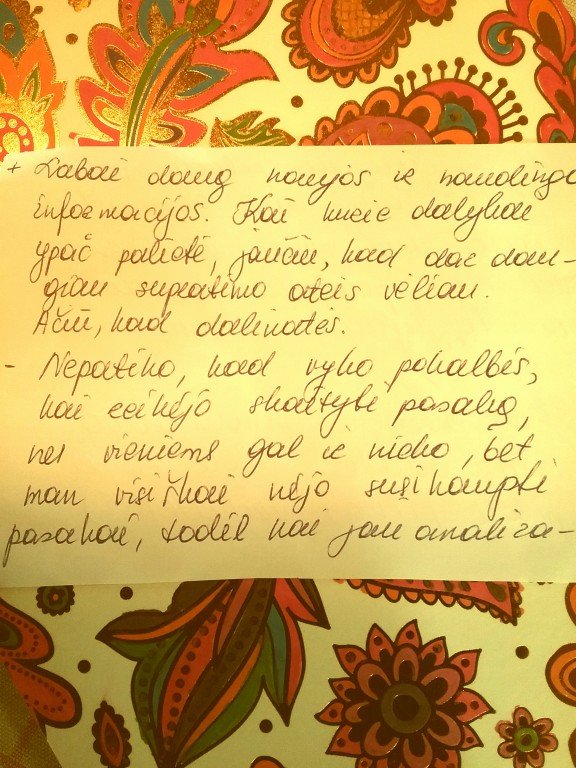 + Labai daug naujos ir naudingo
informacijos. Kai kurie dalykai
ypač palietė, jaučiu, kad dar dau-
giau supratimo ateis vėliau.
Ačiū, kad dalinotės.
- Nepatiko, kad vyko pokalbis,
kai reikėjo skaityti pasaką,
nes vieniems gal ir nieko, bet
man visiškai nėjo susikaupti
pasakai, todėl kai jau analiza-